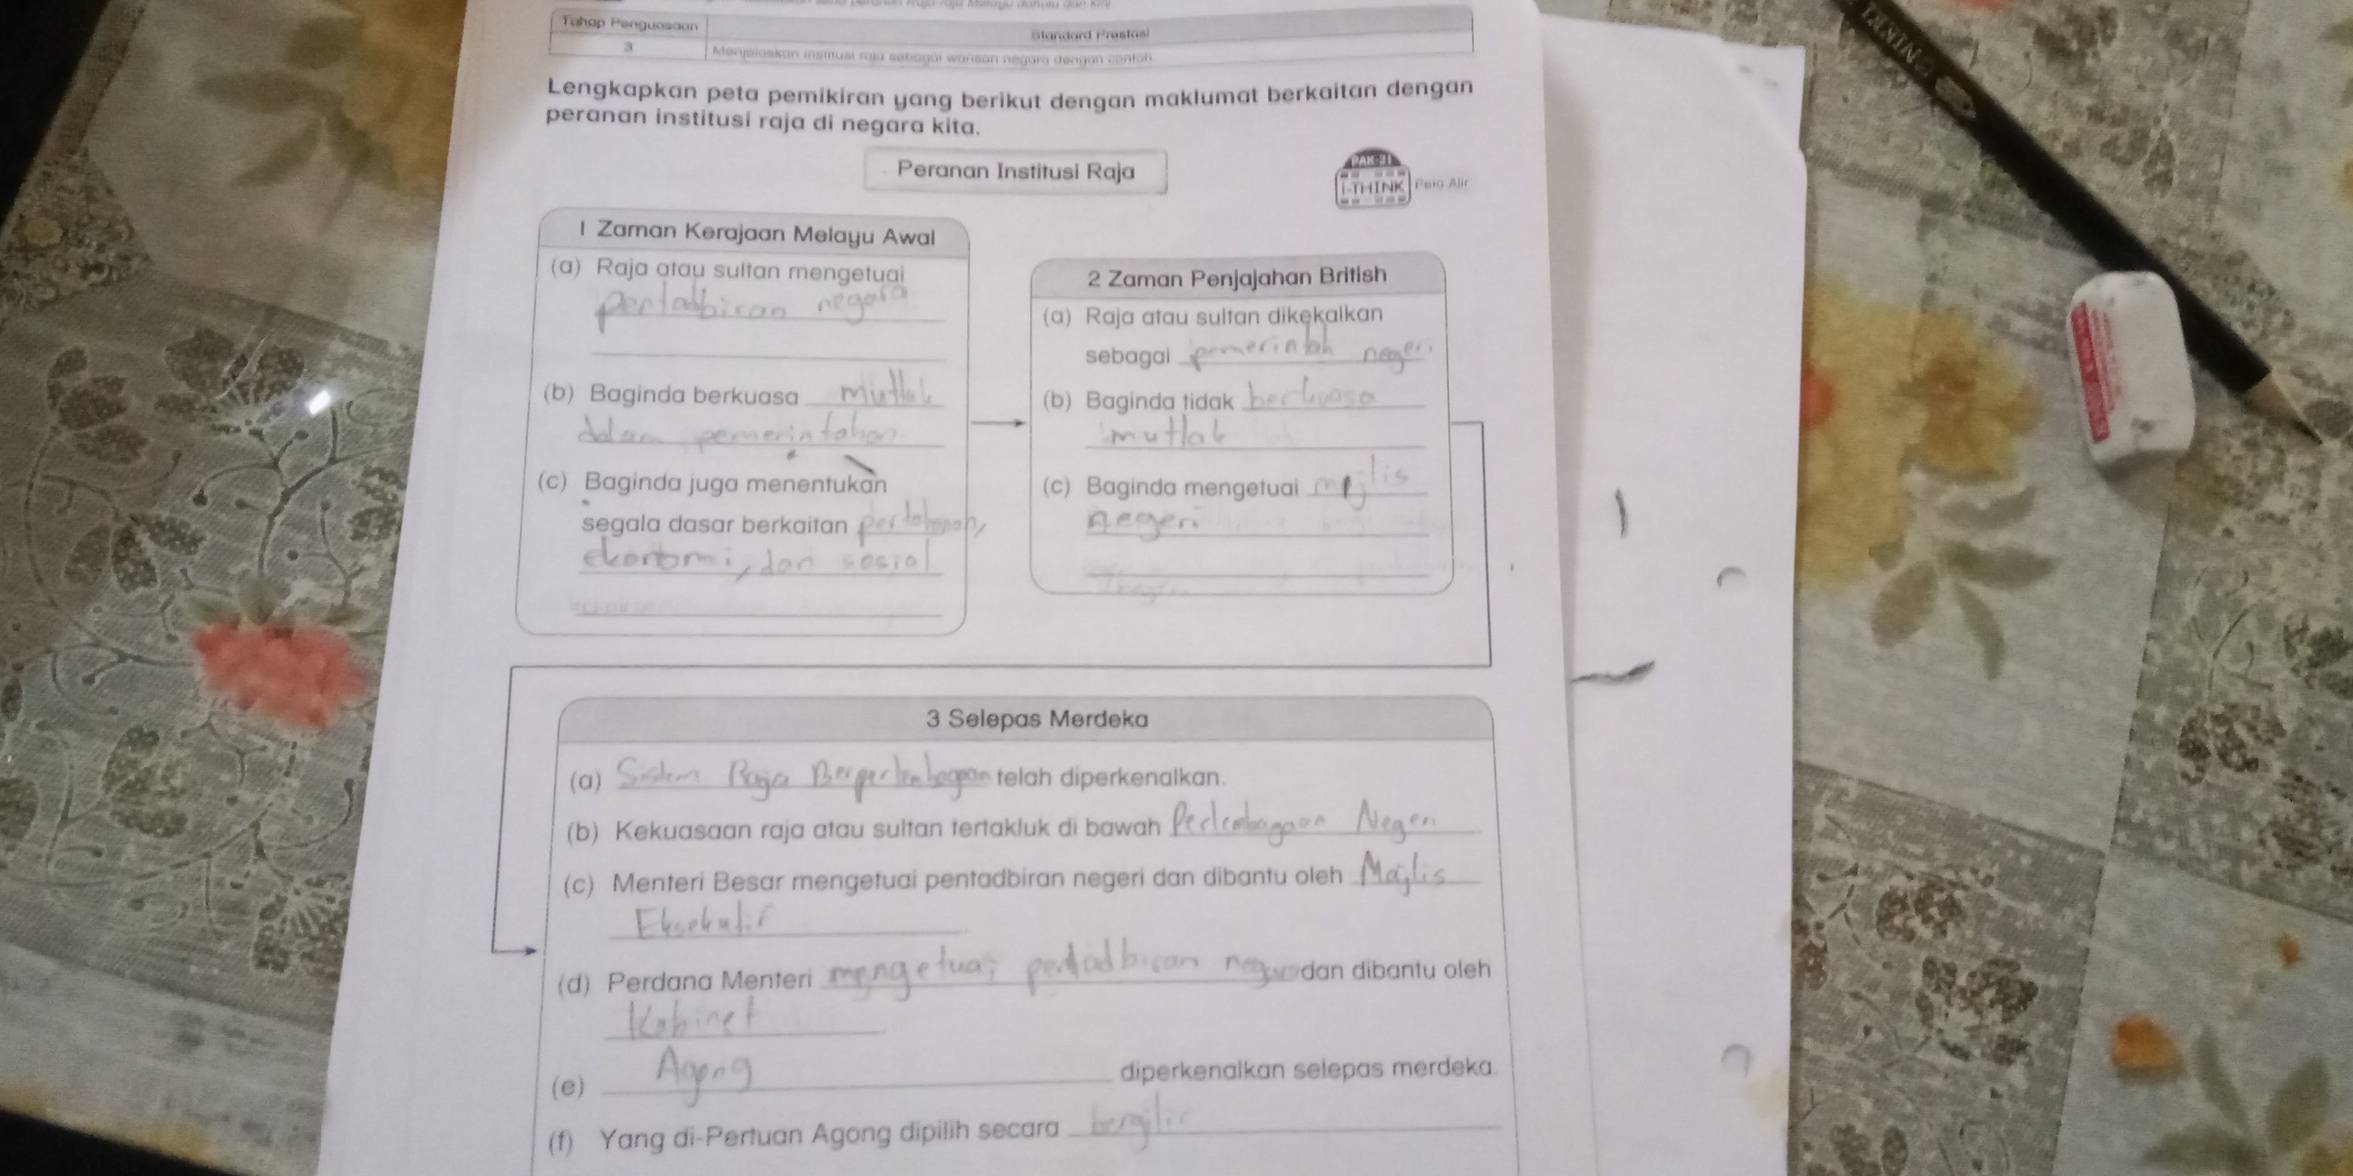 Tahap Penguasaan
Standard Prestasi
3
Menjelaskan institusi raja sebagai warisan negara dengan contoh
Lengkapkan peta pemikiran yang berikut dengan maklumat berkaitan dengan
peranan institusi raja di negara kita.
Peranan Institusi Raja
PAK-21
i-THINK Peta Alir
1 Zaman Kerajaan Melayu Awal
(a) Raja atau sultan mengetuai
pentadbiran negara
(b) Baginda berkuasa mutlak
dalam pemerintahan
(c) Baginda juga menentukan
segala dasar berkaitan
ekonomi, dan sosial
2 Zaman Penjajahan British
(a) Raja atau sultan dikekalkan
sebagai pemerintah negeri
(b) Baginda tidak berkuasa
mutlak
(c) Baginda mengetuai mejlis
negeri
3 Selepas Merdeka
(a) Sistem Raja Berperlembagaan telah diperkenalkan.
(b) Kekuasaan raja atau sultan tertakluk di bawah Perlembagaan Negeri
(c) Menteri Besar mengetuai pentadbiran negeri dan dibantu oleh Majlis
Eksekutif
(d) Perdana Menteri mengetuai pentadbiran negara dan dibantu oleh
Kabinet
(e) Agong diperkenalkan selepas merdeka.
(f) Yang di-Pertuan Agong dipilih secara bergilir